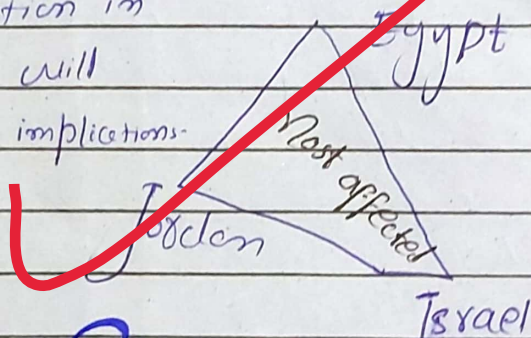 tion in
Egypt
will
implications.
Most affected
Jordan
Israel